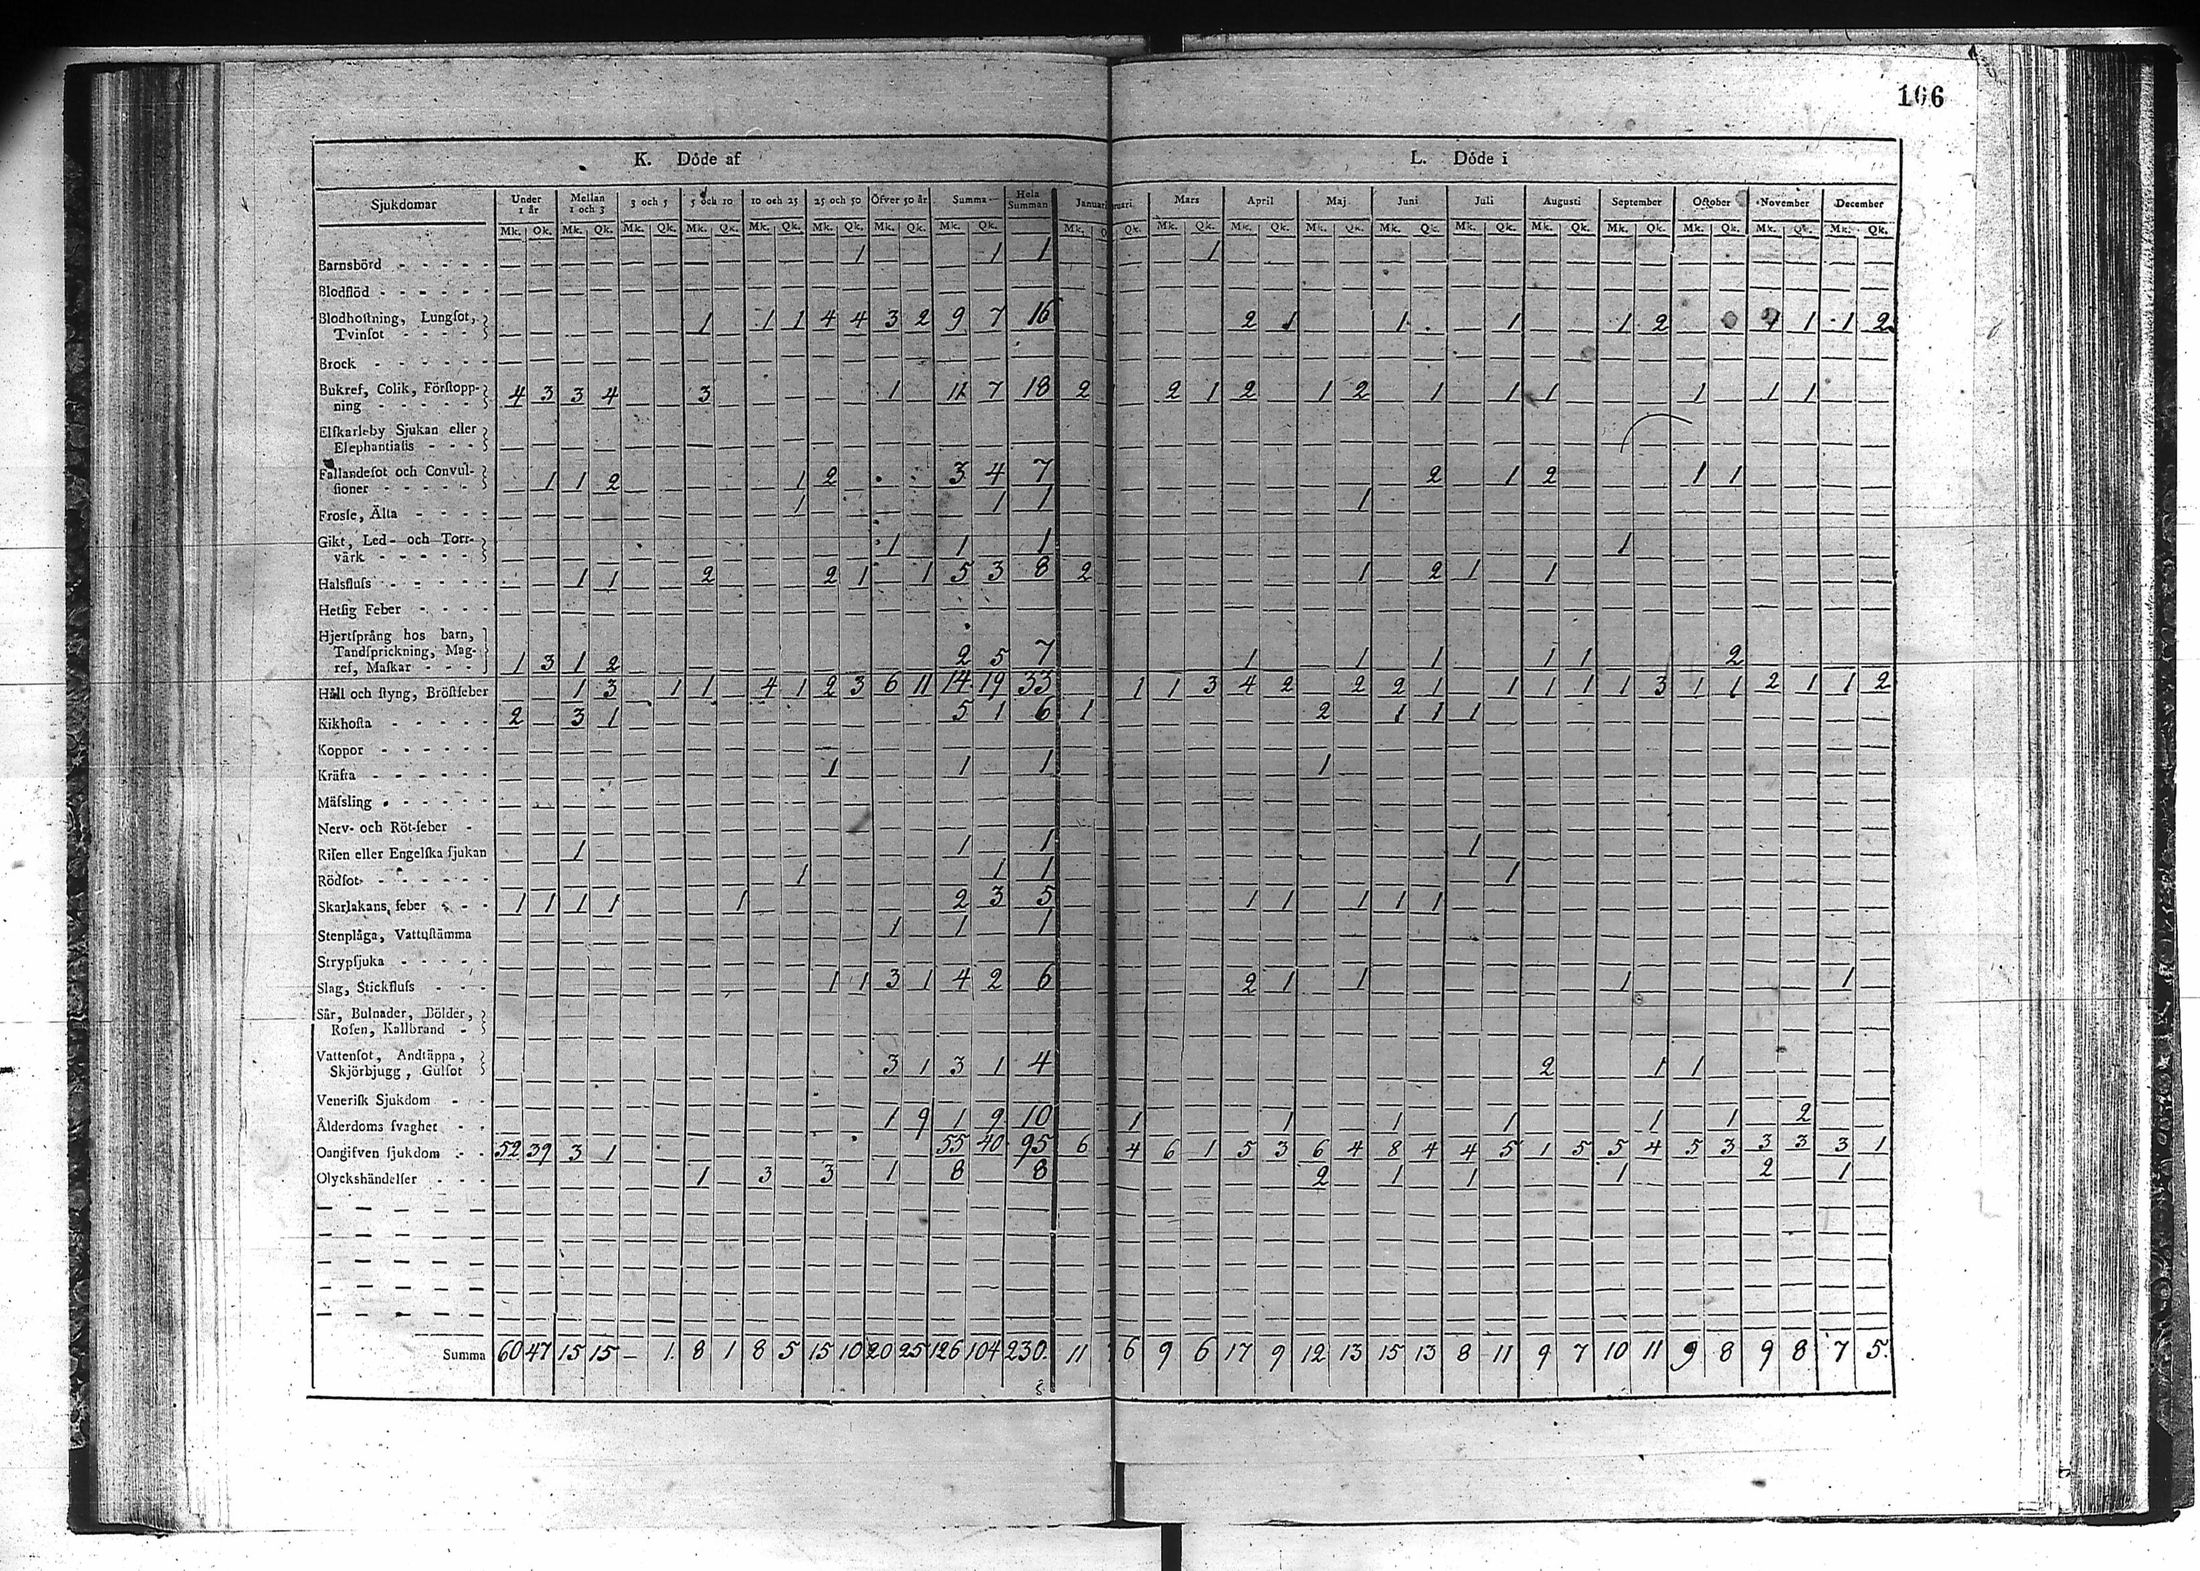 166
K. Döde af
L. Döde i
Sjukdomar Under 1 år Mellan 1 och 3 3 och 5 5 och 10 10 och 25 25 och 50 Öfver 50 år Summa Hela Summan Januari ruari Mars April Maj Juni Juli Augusti September October November December
Mk. Qk. Mk. Qk. Mk. Qk. Mk. Qk. Mk. Qk. Mk. Qk. Mk. Qk. Mk. Qk. Mk. Q Qk. Mk. Qk. Mk. Qk. Mk. Qk. Mk. Qk. Mk. Qk. Mk. Qk. Mk. Qk. Mk. Qk. Mk. Qk. Mk. Qk.
Barnsbörd 1 1 1 1
Blodflöd
Blodhoſtning, Lungſot,
Tvinſot 1 1 1 4 4 3 2 9 7 16 2 1 1 1 1 2 1 1 2
Brock
Bukref, Colik, Förſtopp-
ning 4 3 3 4 3 1 11 7 18 2 2 1 2 1 2 1 1 1 1 1 1
Elſkarleby Sjukan eller
Elephantiaſis
Fallandeſot och Convul-
ſioner 1 1 2 1 2 3 4 7 2 1 2 1 1
Froſſe, Älta 1 1 1 1
Gikt, Led- och Torr-
värk 1 1 1 1
Halsfluſs 1 1 2 2 1 1 5 3 8 2 1 2 1 1
Hetſig Feber
Hjertſprång hos barn,
Tandſprickning, Mag-
ref, Maſkar 1 3 1 2 2 5 7 1 1 1 1 1 2
Håll och ſtyng, Bröſtfeber 1 3 1 1 4 1 2 3 6 11 14 19 33 1 1 3 4 2 2 2 1 1 1 1 1 3 1 1 2 1 1 2
Kikhoſta 2 3 1 5 1 6 1 2 1 1 1
Koppor
Kräfta 1 1 1 1
Mäſsling
Nerv- och Röt-feber
Riſen eller Engelſka ſjukan 1 1 1 1
Rödſot 1 1 1 1
Skarlakans feber 1 1 1 1 1 2 3 5 1 1 1 1 1
Stenplåga, Vattuſtämma 1 1 1
Strypſjuka
Slag, Stickfluſs 1 1 3 1 4 2 6 2 1 1 1 1
Sår, Bulnader, Bölder,
Roſen, Kallbrand
Vattenſot, Andtäppa,
Skjörbjugg, Gulſot 3 1 3 1 4 2 1 1
Veneriſk Sjukdom
Ålderdoms ſvaghet 1 9 1 9 10 1 1 1 1 1 1 2
Oangifven ſjukdom 52 39 3 1 55 40 95 6 4 6 1 5 3 6 4 8 4 4 5 1 5 5 4 5 3 3 3 3 1
Olyckshändelſer 1 3 3 1 8 8 2 1 1 1 2 1
Summa 60 47 15 15 - 1. 8 1 8 5 15 10 20 25 126 104 230. 11 6 9 6 17 9 12 13 15 13 8 11 9 7 10 11 9 8 9 8 7 5.